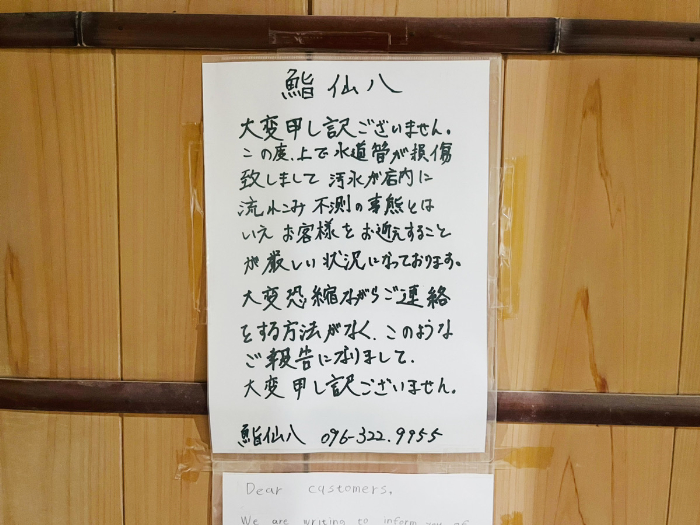 鮨 仙八
大変申し訳ございません。
この度、上で水道管が損傷
致しまして 汚水が店内に
流れこみ 不測の事態とは
いえ お客様をお迎えすること
が厳しい状況になっております。
大変恐縮ながらご連絡
をする方法がなく、このような
ご報告になりまして、
大変申し訳ございません。
鮨仙八 096-322-9955
Dear customers.
We are writing to inform you of